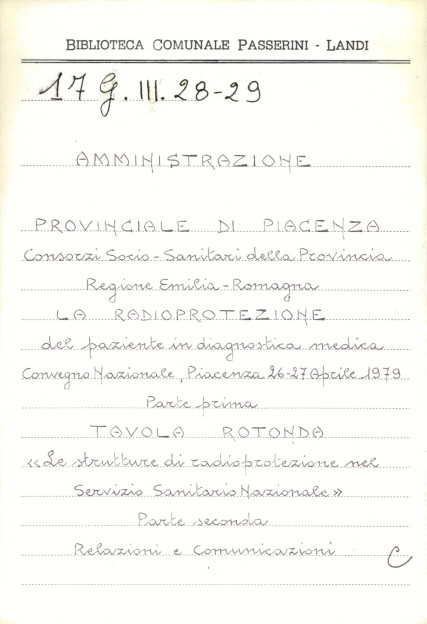 BIBLIOTECA COMUNALE PASSERINI - LANDI
17 G. III. 28-29
AMMINISTRAZIONE
PROVINCIALE DI PIACENZA
Consorzi Socio-Sanitari della Provincia
Regione Emilia-Romagna
LA RADIOPROTEZIONE
del paziente in diagnostica medica
Convegno Nazionale, Piacenza 26-27 Aprile 1979
Parte prima
TAVOLA ROTONDA
«Le strutture di radioprotezione nel
Servizio Sanitario Nazionale»
Parte seconda
Relazioni e Comunicazioni C